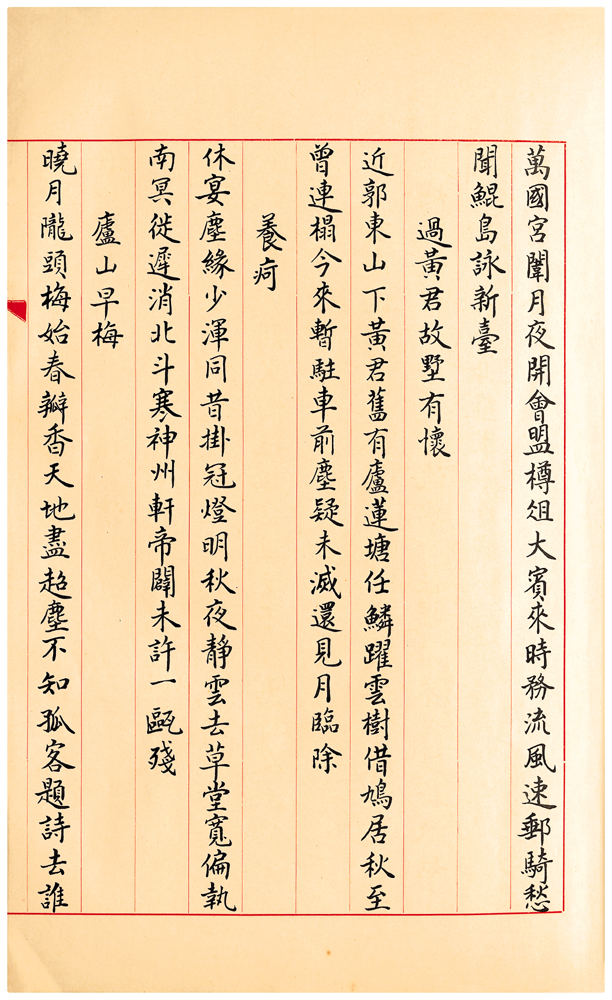 萬國宮闈月夜開會盟樽俎大賓來時務流風速郵騎愁
聞鯤島詠新臺
過黃君故墅有懷
近郭東山下黃君舊有廬蓮塘任鱗躍雲樹借鳩居秋至
曾連榻今來暫駐車前塵疑未滅還見月臨除
養疴
休宴塵緣少渾同昔掛冠燈明秋夜靜雲去草堂寬偏執
南冥徙遲消北斗寒神州軒帝闢未許一甌殘
廬山早梅
曉月隴頭梅始春瓣香天地盡超塵不知孤客題詩去誰